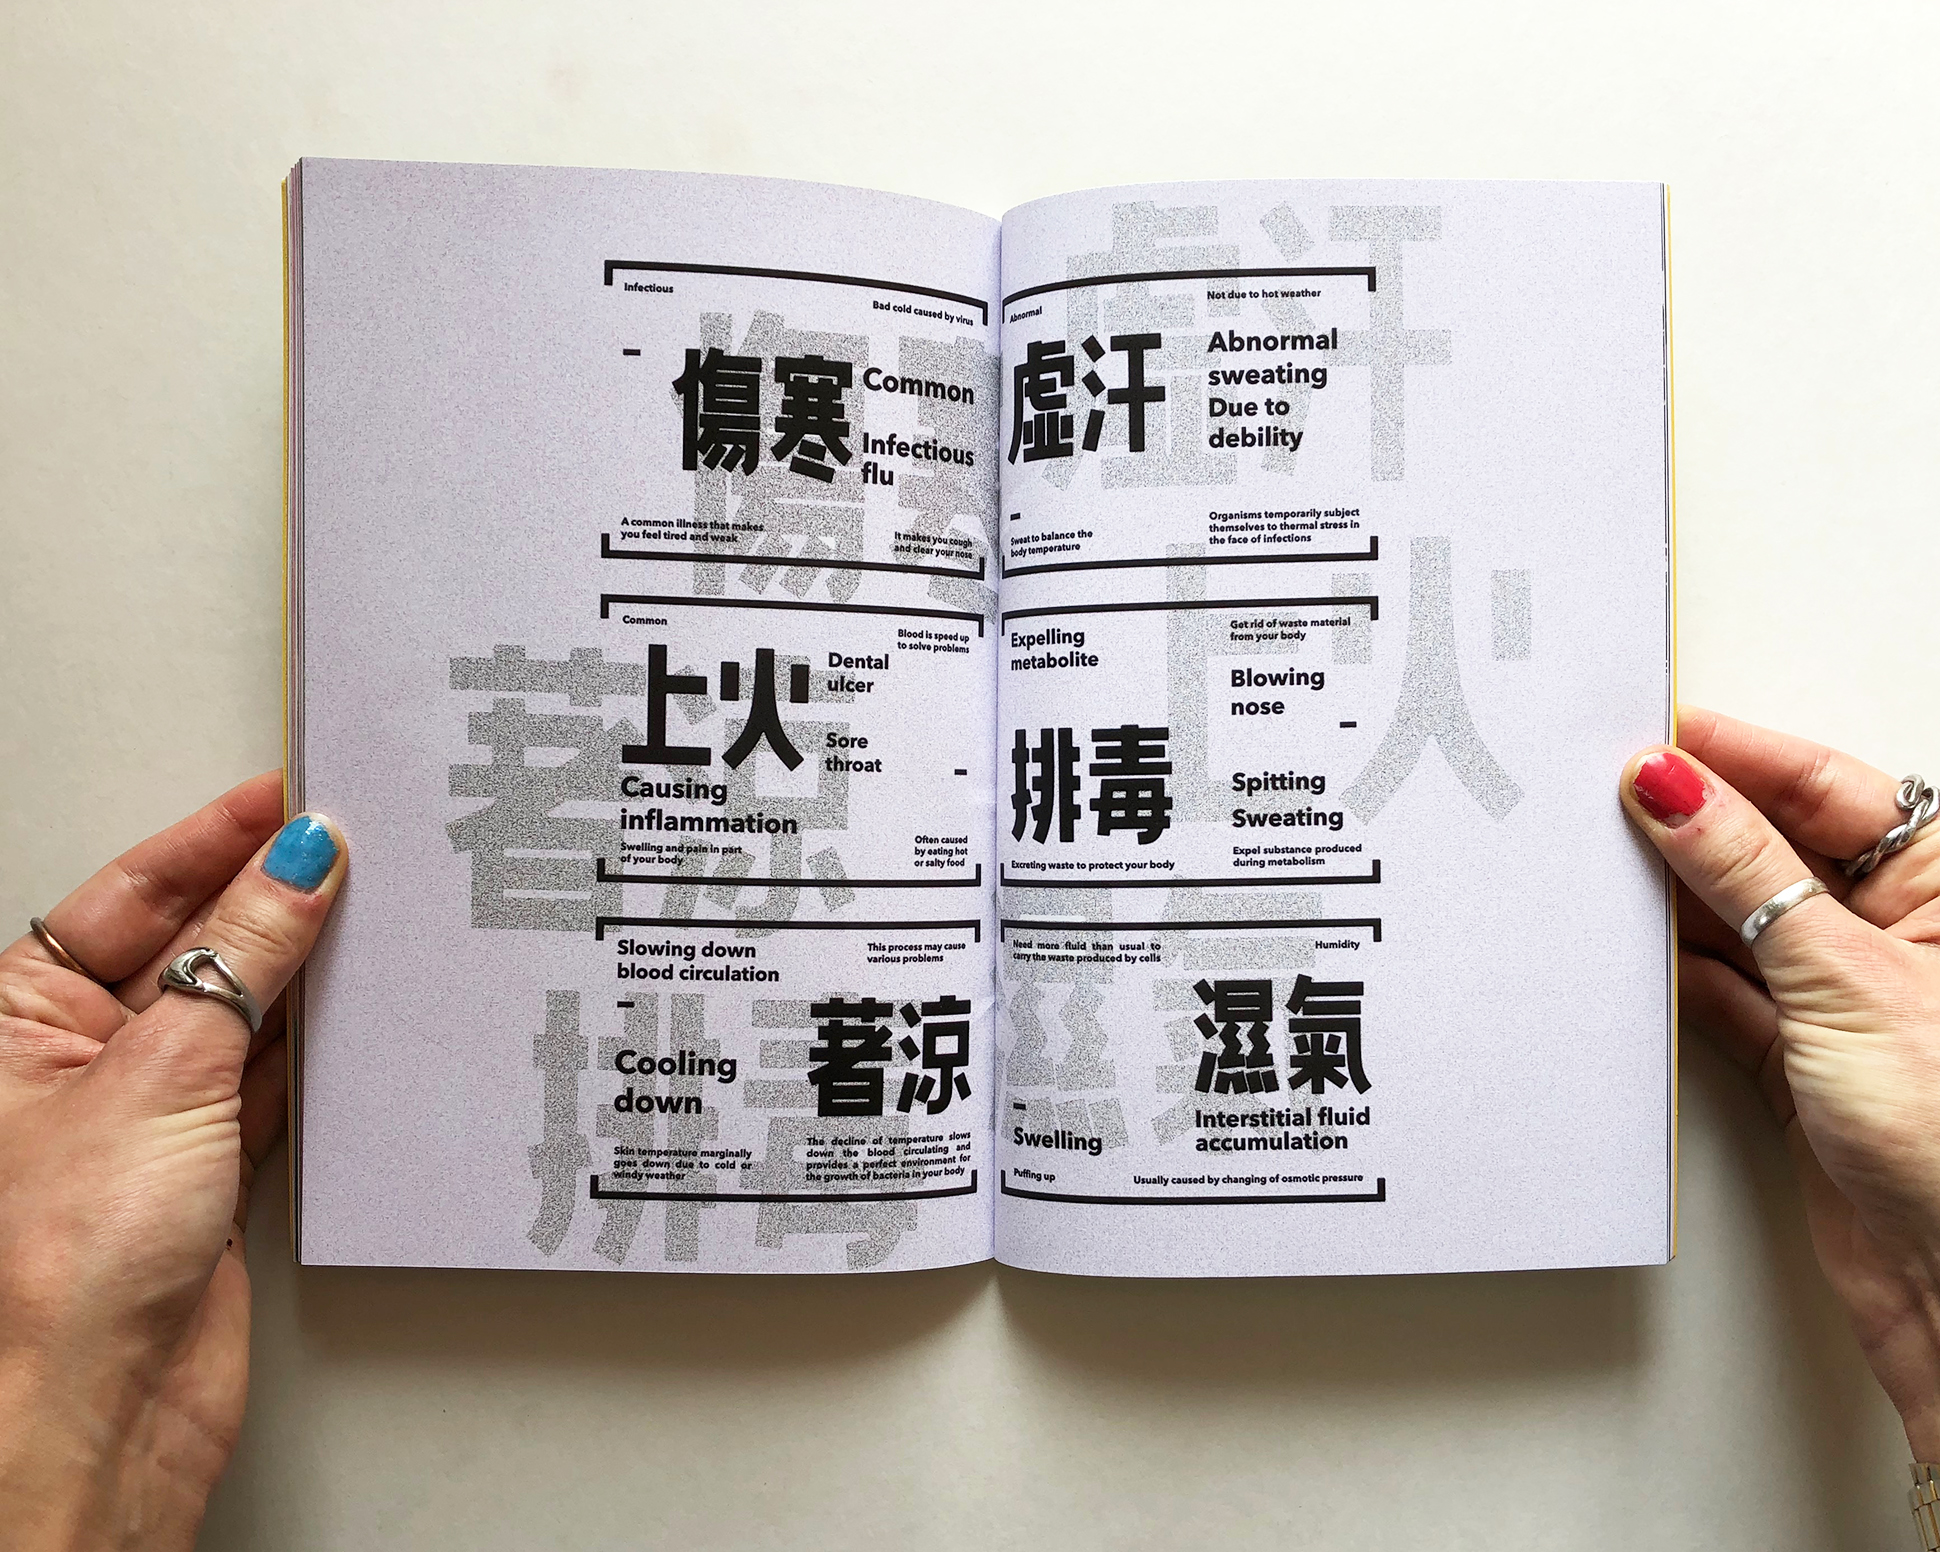 Infectious
Bad cold caused by virus
傷寒
Common
Infectious
flu
A common illness that makes
you feel tired and weak
It makes you cough
and clear your nose
Common
Blood is speed up
to solve problems
上火
Dental
ulcer
Sore
throat
Causing
inflammation
Swelling and pain in part
of your body
Often caused
by eating hot
or salty food
Slowing down
blood circulation
This process may cause
various problems
Cooling
down
著涼
Skin temperature marginally
goes down due to cold or
windy weather
The decline of temperature slows
down the blood circulating and
provides a perfect environment for
the growth of bacteria in your body
傷寒
著涼
排毒
Abnormal
Not due to hot weather
虛汗
Abnormal
sweating
Due to
debility
Sweat to balance the
body temperature
Organisms temporarily subject
themselves to thermal stress in
the face of infections
Expelling
metabolite
Get rid of waste material
from your body
Blowing
nose
排毒
Spitting
Sweating
Excreting waste to protect your body
Expel substance produced
during metabolism
Need more fluid than usual to
carry the waste produced by cells
Humidity
濕氣
Swelling
Interstitial fluid
accumulation
Puffing up
Usually caused by changing of osmotic pressure
虛汗
上火
濕氣